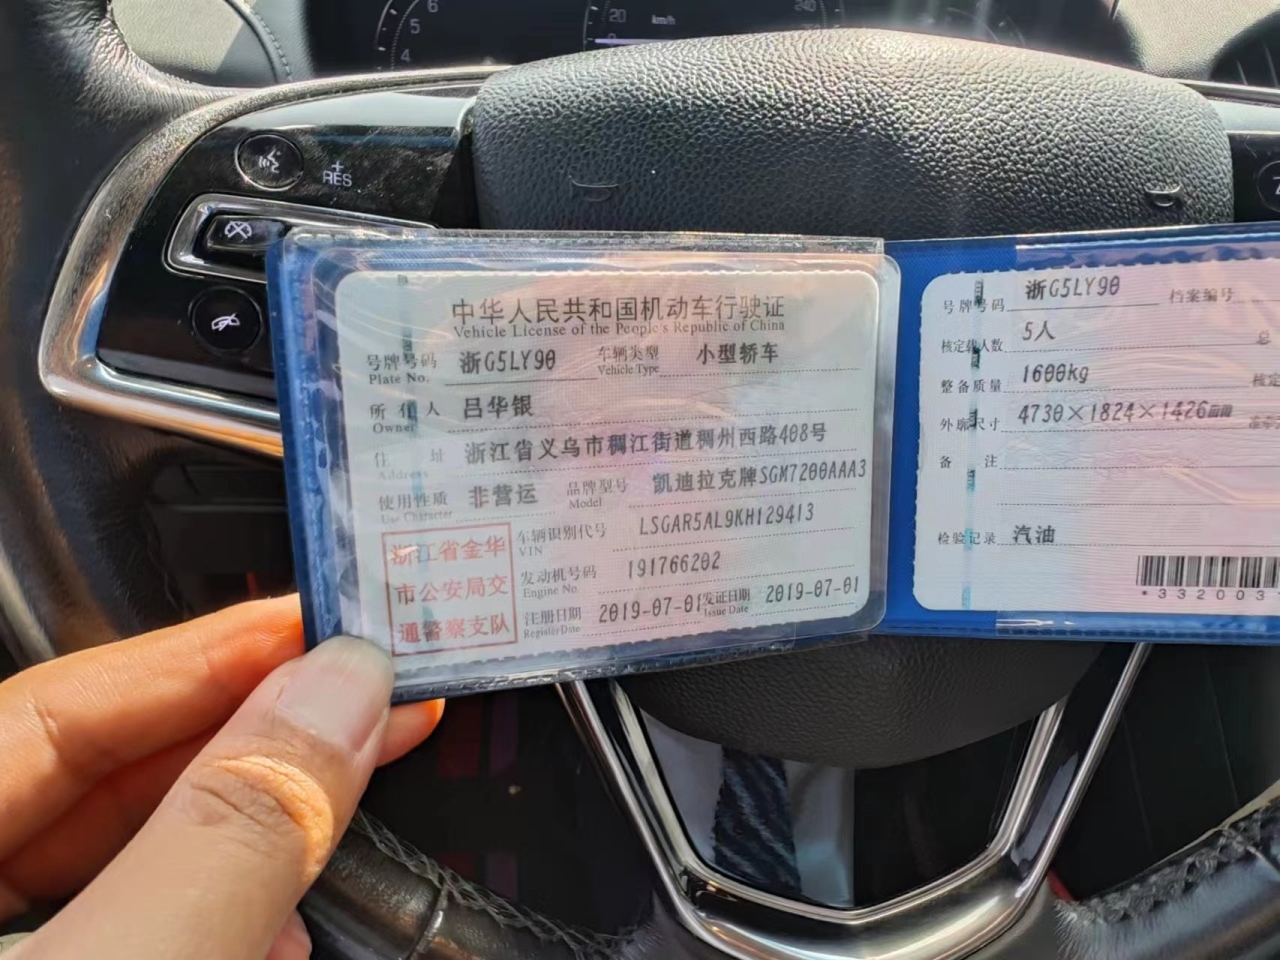 6
5
4
20
km/h
240
+
RES
中华人民共和国机动车行驶证
Vehicle License of the People's Republic of China
号牌号码 浙G5LY90 车辆类型 小型轿车
Plate No. Vehicle Type
所有人 吕华银
Owner
住址 浙江省义乌市稠江街道稠州西路408号
Address
使用性质 非营运 品牌型号 凯迪拉克牌SGM7200AAA3
Use Character Model
浙江省金华
市公安局交
通警察支队
车辆识别代号 LSGAR5AL9KH129413
VIN
发动机号码 191766202
Engine No.
注册日期 2019-07-01 发证日期 2019-07-01
Register Date Issue Date
号牌号码 浙G5LY90 档案编号
核定载人数 5人 总
整备质量 1600kg 核定
外廓尺寸 4730×1824×1426mm
备注
检验记录 汽油
*332003